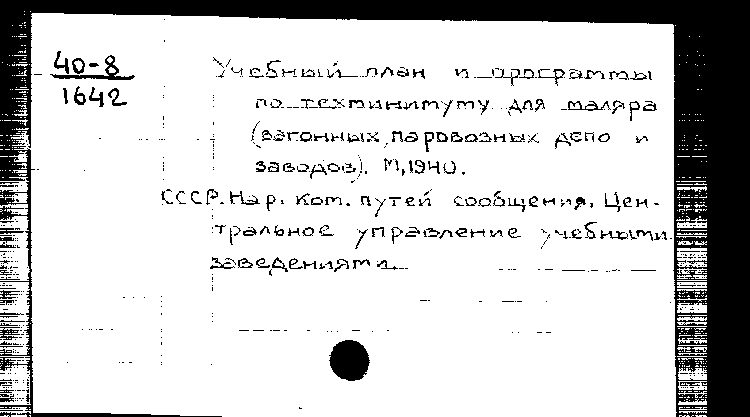 40-8
1642
Учебный план и программы
по техминимуму для маляра
(вагонных, паровозных депо и
заводов). М, 1940.
СССР. Нар. ком. путей сообщения. Цен-
тральное управление учебными
заведениями.